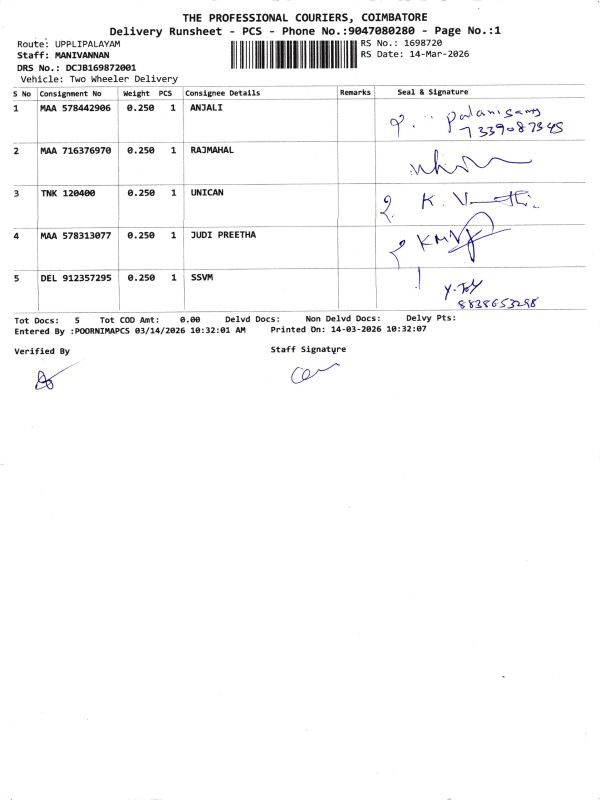 THE PROFESSIONAL COURIERS, COIMBATORE
Delivery Runsheet - PCS - Phone No.:9047080280 - Page No.:1
Route: UPPLIPALAYAM RS No.: 1698720
Staff: MANIVANNAN RS Date: 14-Mar-2026
DRS No.: DCJB169872001
Vehicle: Two Wheeler Delivery
S No Consignment No Weight PCS Consignee Details Remarks Seal & Signature
1 MAA 578442906 0.250 1 ANJALI Palanisamy
7339087345
2 MAA 716376970 0.250 1 RAJMAHAL
3 TNK 120400 0.250 1 UNICAN K.
4 MAA 578313077 0.250 1 JUDI PREETHA
5 DEL 912357295 0.250 1 SSVM
8838653298
Tot Docs: 5 Tot COD Amt: 0.00 Delvd Docs: Non Delvd Docs: Delvy Pts:
Entered By :POORNIMAPCS 03/14/2026 10:32:01 AM Printed On: 14-03-2026 10:32:07
Verified By Staff Signature